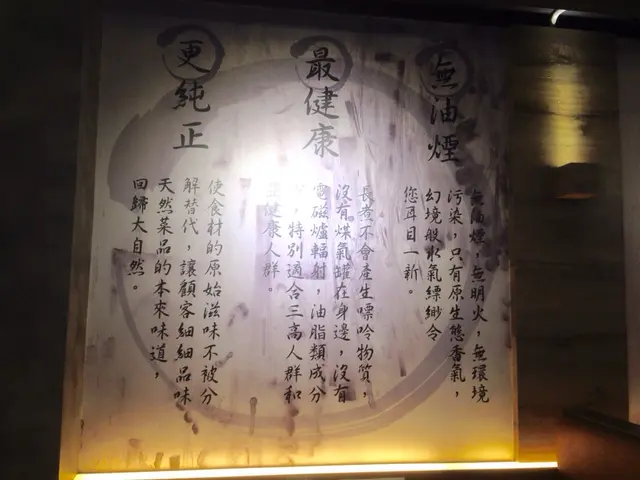 無油煙
無油煙，無明火，無環境
污染，只有原生態香氣，
幻境般水氣縹緲令
您耳目一新。
最健康
長煮不會產生嘌呤物質，
沒有煤氣罐在身邊，沒有
電磁爐輻射，油脂類成分
，特別適合三高人群和
亞健康人群。
更純正
使食材的原始滋味不被分
解替代，讓顧客細細品味
天然菜品的本來味道，
回歸大自然。